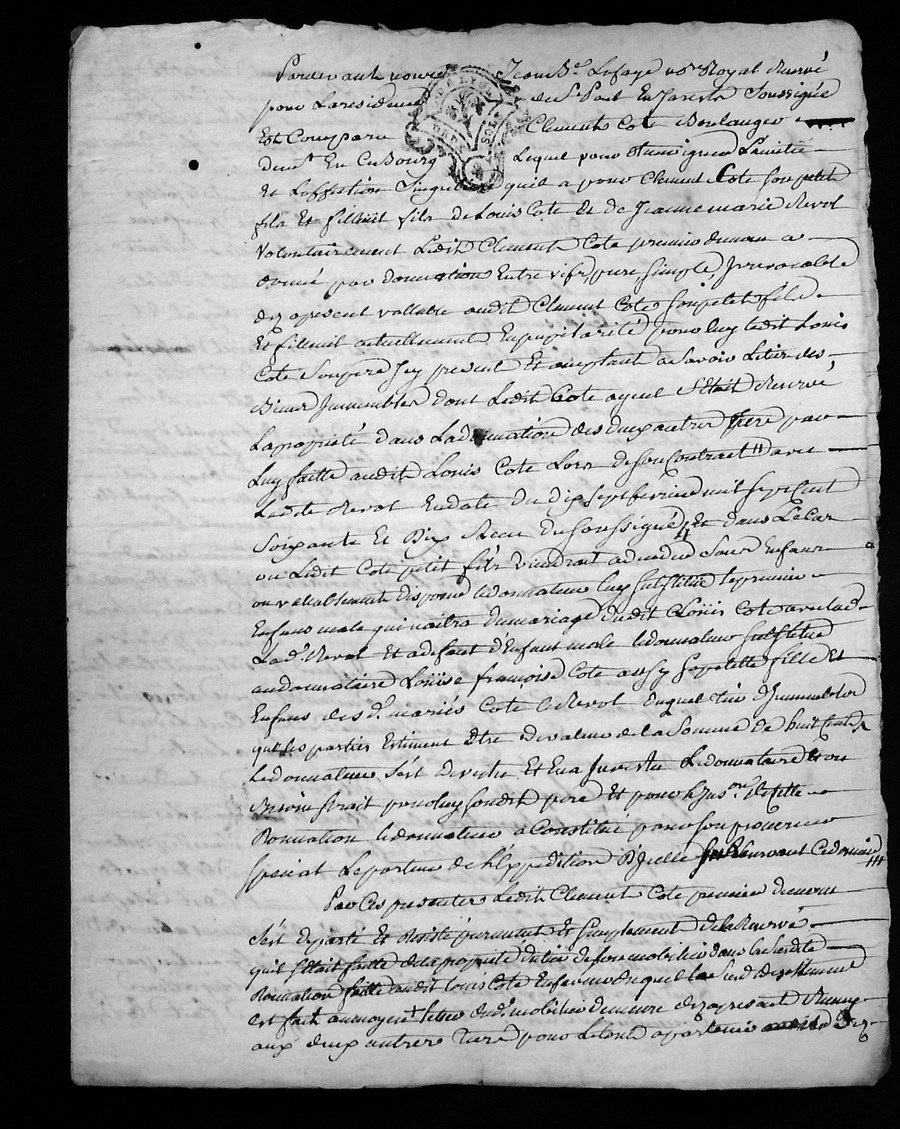 Pardevant nous Jean Bte Lafaye no.re Royal Reservé
pour La residence de St Paul En Jarests Soussignée
Est Comparu Clement Cote Boulanger
demt En Ce Bourg Lequel pour temoigner L'amitié
et L'affection Singuliere quil a pour Clement Cote Son petit
fils Et filleuil fils de Louis Cote et de Jeanne marie Revol
Volontairement Ledit Clement Cote premier du nom a
donné par donnation Entre vifs, pure simple, Irrevocable
dez apresent vallable audit Clement Cote Son petit fils
Et filleuil actuellement En pupilarité, pour luy ledit Louis
Cote Son pere Icy present Et acceptant a Savoir Le tier des
Biens Immeubles dont Ledit Cote ayeul S'Etait Reservé
La propriété dans La donnation des deux autres tiers par
Luy faitte audit Louis Cote Lors de Son Contract avec
Ladite Revol En date du dix Sept fevrier mil Sept Cent
Soixante Et Dix Receu du Soussigné Et dans Le Cas
ou Ledit Cote petit fils viendrait a deceder Sans Enfans
ou vallablement disposer le donnateur luy Substitue le premier
Enfans male qui naitra du mariage dudit Louis Cote avec lad
La de Revol Et a defaut d'Enfant male le donnateur Substitue
au donnataire Louise françoise Cote aussy Sa petitte fille Et
Enfans des d. mariés Cote & Revol duquel tier d'Immeubles
que les parties Estiment Etre de valeur de la Somme de huit Cent
Le donnateur S'est devetu Et En a Investu Le donnataire Et ou
Besoin Serait pour luy Sondit pere Et pour h Insin.on de cette
Donnation le donnateur a Constitué pour Son procureur
Special Le porteur de L'Expedition D'Jcelle Ce donnateur
Par Ces presentes Ledit Clement Cote premier du nom
S'est departi Et desisté purement Et Simplement de la Reserve
qu'il S'Etait faitte de la propriété du tier de Son mobilier dans la Susdite
Donnation faitte audit Louis Cote En faveur duquel Le Sus d. departement
est fait au moyent Le tier dud. mobilier demeure dez apresent Reuny
aux deux autres tiers pour Le tout apartenir dez